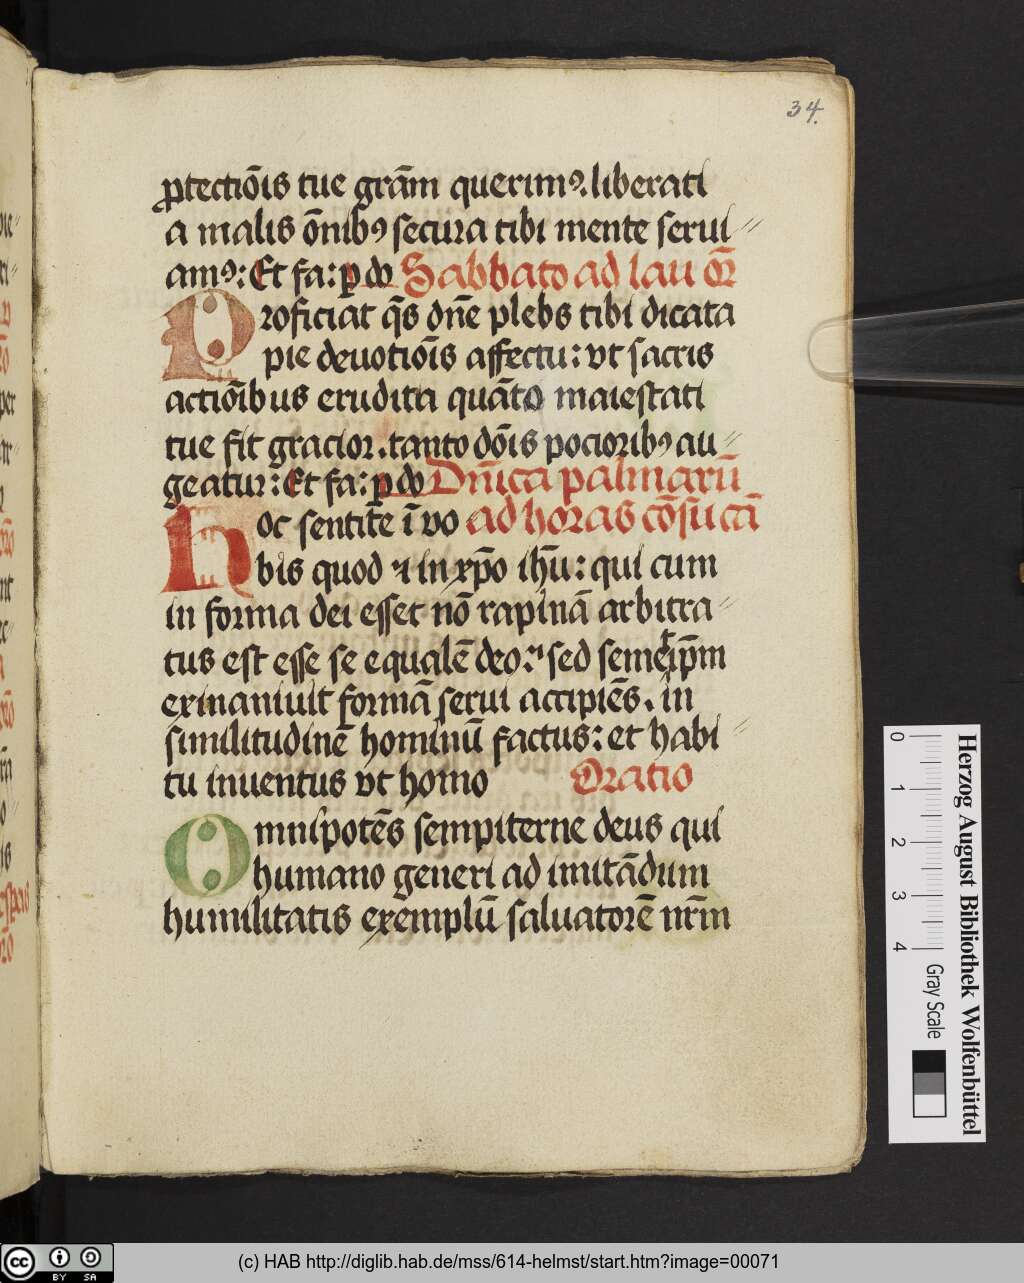 34.
ꝓtectiōis tue grām querimꝰ. liberati
a malis ōnibꝰ secura tibi mente serui〃
amꝰ: Et fa: ꝑ do Sabbato ad lau or̄
Proficiat q̄s dn̄e plebs tibi dicata
pie deuotiōis affectu: vt sacris
actiōibus erudita quāto maiestati
tue fit gracior. tanto dōis pocioribꝰ au〃
geatur: Et fa: ꝑ do Dn̄ica palmarū
Hoc sentite ī vo ad horas cōsu cā
bis quod ⁊ in xp̄o ih̄u: qui cum
in forma dei esset nō rapinā arbitra〃
tus est esse se equalē deo: sed semetip̄m
exinaniuit formā serui accipiēs. in
similitudinē hominū factus: et habi〃
tu inuentus vt homo Oratio
Omnipotēs sempiterne deus qui
humano generi ad imitādum
humilitatis exemplū saluatorē nr̄m
0 1 2 3 4
Gray Scale
Herzog August Bibliothek Wolfenbüttel
cc BY SA
(c) HAB http://diglib.hab.de/mss/614-helmst/start.htm?image=00071